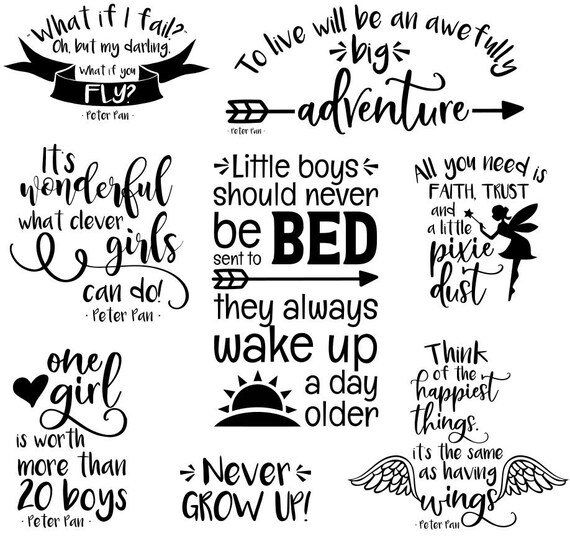 What if I fail?
Oh, but my darling,
What if you
FLY?
· Peter Pan ·
To live will be an awefully
big
adventure
· Peter Pan ·
It's
wonderful
what clever
girls
can do!
· Peter Pan ·
Little boys
should never
be
sent to
BED
they always
wake up
a day
older
All you need is
FAITH, TRUST
and
a little
pixie
dust
one
girl
is worth
more than
20 boys
· Peter Pan ·
Never
GROW UP!
Think
of the
happiest
things.
it's the same
as having
wings
· Peter Pan ·